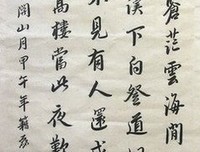 蒼茫雲海間
漢下白登道
見有人還戍
高樓當此夜歎
關山月甲午年